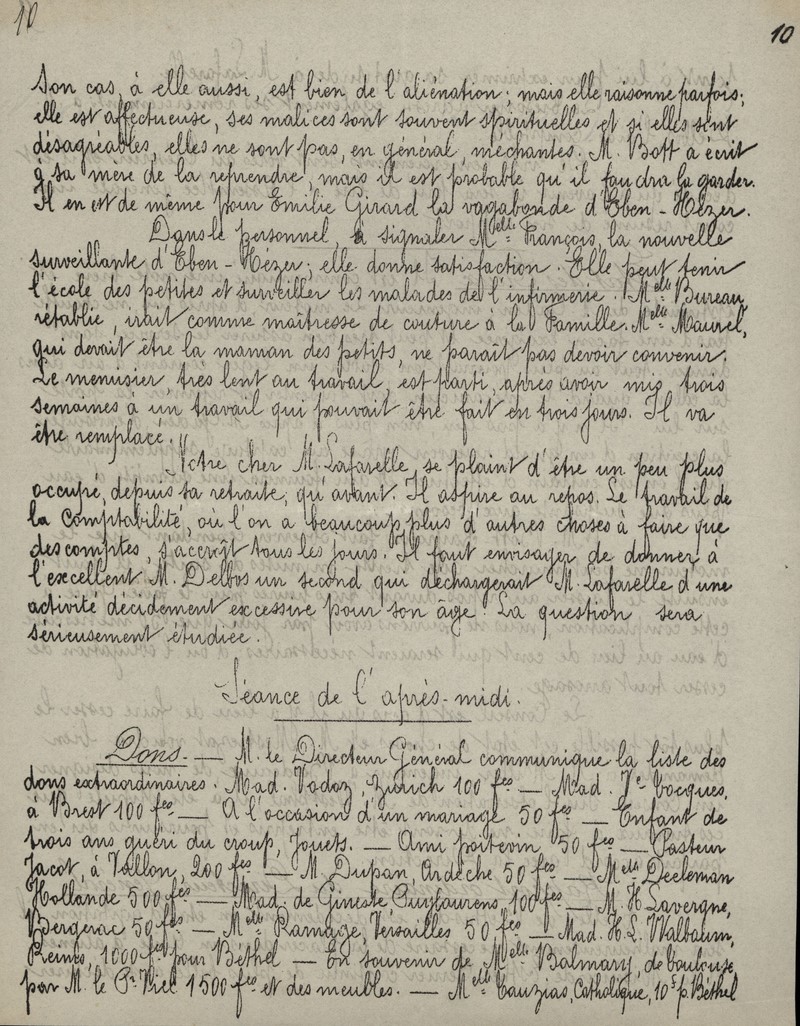 10
10
Son cas, à elle aussi, est bien de l'aliénation; mais elle raisonne parfois;
elle est affectueuse, ses malices sont souvent spirituelles et si elles sont
désagréables, elles ne sont pas, en général, méchantes. M. Bott a écrit
à sa mère de la reprendre, mais il est probable qu'il faudra la garder.
Il en est de même pour Emilie Girard la vagabonde d'Eben-Hézer.
Dans le personnel, à signaler Melle François, la nouvelle
surveillante d'Eben-Hézer; elle donne satisfaction. Elle peut tenir
l'école des petites et surveiller les malades de l'infirmerie. Melle Bureau,
rétablie, irait comme maîtresse de couture à la Famille. Melle Maurel,
qui devait être la maman des petits, ne paraît pas devoir convenir.
Le menuisier, très lent au travail, est parti, après avoir mis trois
semaines à un travail qui pouvait être fait en trois jours. Il va
être remplacé.
Notre cher M. Lafarelle se plaint d'être un peu plus
occupé, depuis sa retraite, qu'avant. Il aspire au repos. Le travail de
la Comptabilité, où l'on a beaucoup plus d'autres choses à faire que
des comptes, s'accroît tous les jours. Il faut envisager de donner à
l'excellent M. Delbos un second qui déchargerait M. Lafarelle d'une
activité décidément excessive pour son âge. La question sera
sérieusement étudiée.
Séance de l'après-midi.
Dons. — M. le Directeur Général communique la liste des
dons extraordinaires. Mad. Vodoz, Zurich 100 fcs — Mad. Ve Cocques,
à Brest 100 fcs — A l'occasion d'un mariage 50 fcs — Enfant de
trois ans guéri du croup, Jouets. — Ami poitevin, 50 fcs — Pasteur
Jacot, à Vallon, 200 fcs — M. Dupan, Ardèche 50 fcs — Melle Deeleman
Hollande 500 fcs — Mad. de Gineste Puylaurens, 100 fcs — M. H. Lavergne,
Bergerac 50 fcs — Melle Ramage, Versailles 50 fcs — Mad. H. L. Walbaum,
Reims, 1000 fcs pour Béthel — En souvenir de Melle Balmary, de Toulouse,
par M. le Pr Viel 1500 fcs et des meubles. — Melle Cauzias, Catholique, 10 f p. Béthel